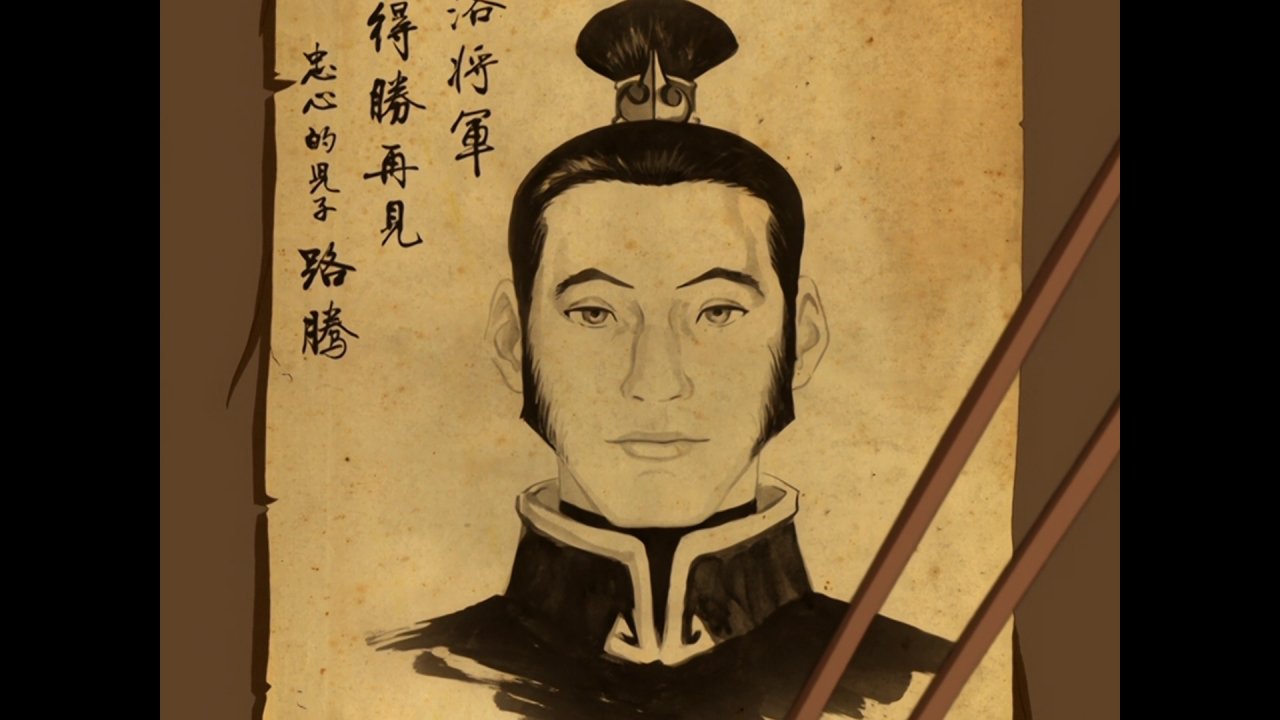 洛將軍
得勝再見
忠心的児子
路騰